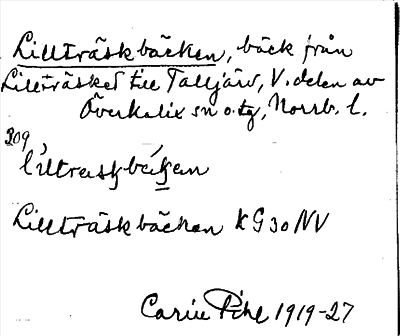 Lillträskbäcken, bäck från
Lillträsket till Talljärv, V. delen av
Överkalix sn o. tg, Norrb. l.
309
Lillträskbäcken KG30NV
Carin Pihl 1919-27